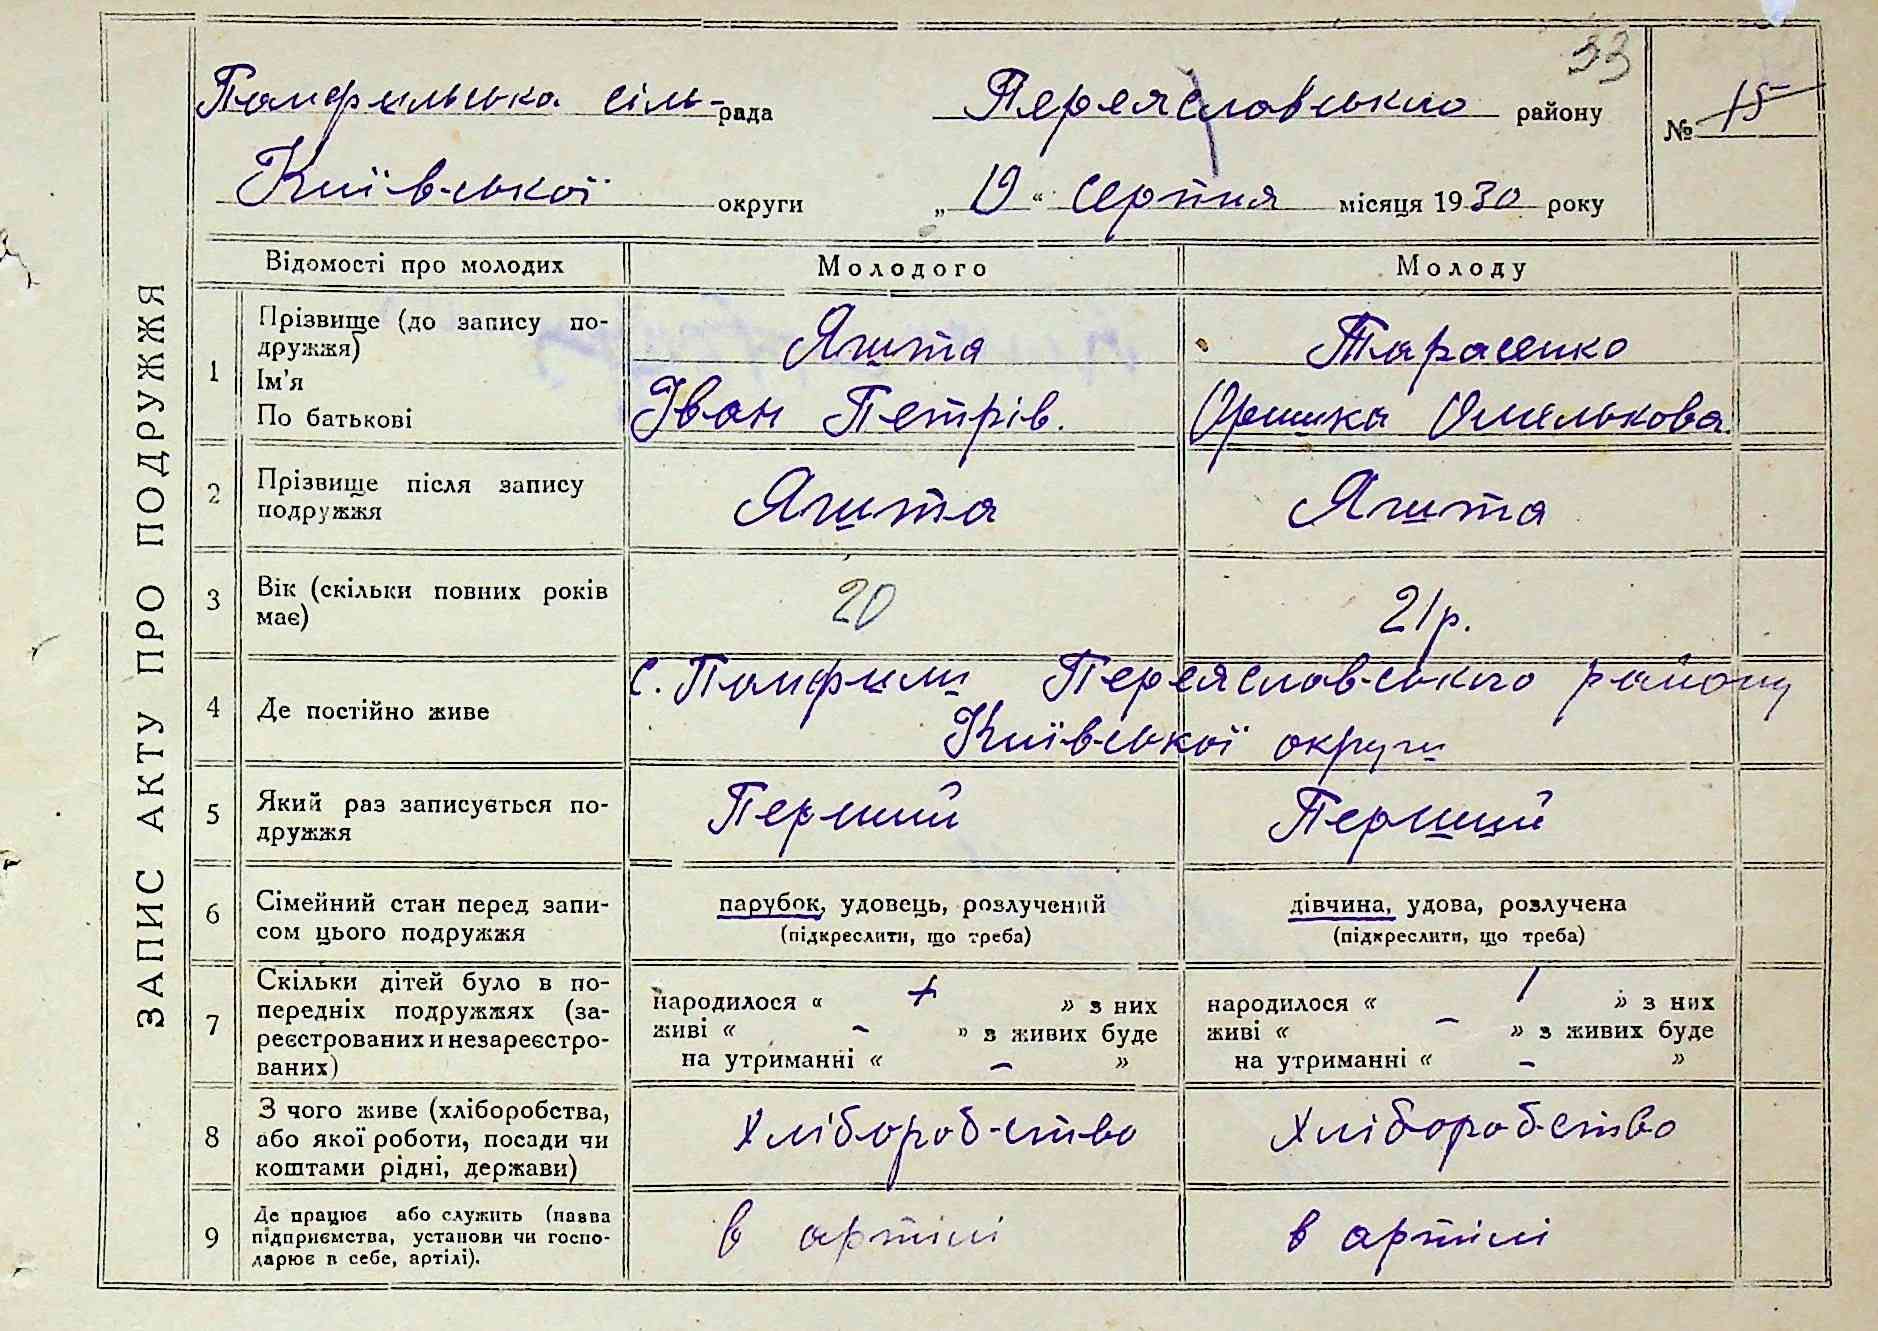 33
Памфильська сіль-рада Переяславського району № 15
Київської округи „19“ серпня місяця 1930 року
ЗАПИС АКТУ ПРО ПОДРУЖЖЯ
Відомості про молодих Молодого Молоду
1 Прізвище (до запису по-
дружжя) Ягита Тарасенко
Ім'я
По батькові Іван Петрів. Оришка Омелькова.
2 Прізвище після запису
подружжя Ягита Ягита
3 Вік (скільки повних років
має) 20 21 р.
4 Де постійно живе с. Памфили Переяславського району
Київської округи
5 Який раз записується по-
дружжя Перший Перший
6 Сімейний стан перед запи-
сом цього подружжя
парубок, удовець, розлучений
(підкреслити, що треба)
дівчина, удова, розлучена
(підкреслити, що треба)
7 Скільки дітей було в по-
передніх подружжях (за-
реєстрованих и незареєстро-
ваних)
народилося « + » з них
живі « – » з живих буде
на утриманні « – »
народилося « / » з них
живі « – » з живих буде
на утриманні « – »
8 З чого живе (хліборобства,
або якої роботи, посади чи
коштами рідні, держави)
Хліборобство Хліборобство
9 Де працює або служить (назва
підприємства, установи чи госпо-
дарює в себе, артілі).
в артілі в артілі